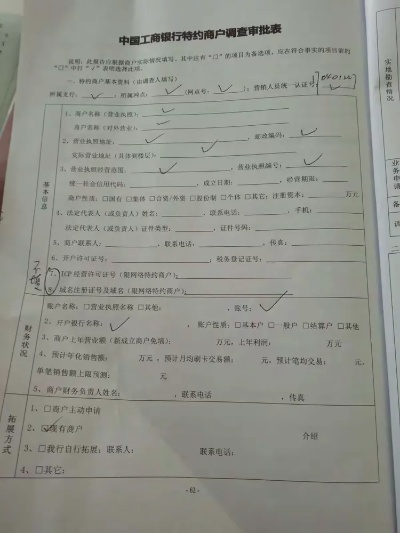 中国工商银行特约商户调查审批表
说明：此报告应根据商户实际情况填写，其中注有“□”的项目为备选项，应在符合事实的项目前的
“□”中打“√”表明选择此项。
一、特约商户基本资料（由调查人填写）
所属支行： ；所属网点： (网点号： )；营销人员统一认证号：
1、商户名称（营业执照）：
商户名称（对外营业）：
2、营业执照地址： ，邮政编码：
实际营业地址（具体到楼层）：
3、营业执照经营范围： ，营业执照编号：
统一社会信用代码： ，成立日期： ，经营期限：
商户性质：□国有 □集体 □合资/外资 □股份制 □个体 □其它；注册资本： 万元
4、法定代表人（或负责人）姓名： ，联系电话： ，手机：
法定代表人（或负责人）证件类型： ，证件号码：
5、商户联系人： ，联系电话： ，传真：
6、开户许可证号： ，税务登记证号：
7、ICP经营许可证号（限网络特约商户）：
8、域名注册证号及域名（限网络特约商户）：
基本信息
账户名称：□营业执照名称 □其他： ，账号：
2、开户银行名称： ，账户性质：□基本户 □一般户 □结算户 □其他
3、商户上年营业额（新成立商户免填）： 万元，上年利润： 万元
4、预计年化销售额： 万元，预计月均刷卡交易额： 元，预计笔均交易： 元
单笔销售额上限预测： 元
5、商户财务负责人姓名： ，联系电话 ，传真
财务状况
1、□商户主动申请
2、□现有商户 介绍
3、□我行自行拓展：联系人： 联系电话：
4、□其它：
拓展方式
-61-
实地勘查情况
备
二